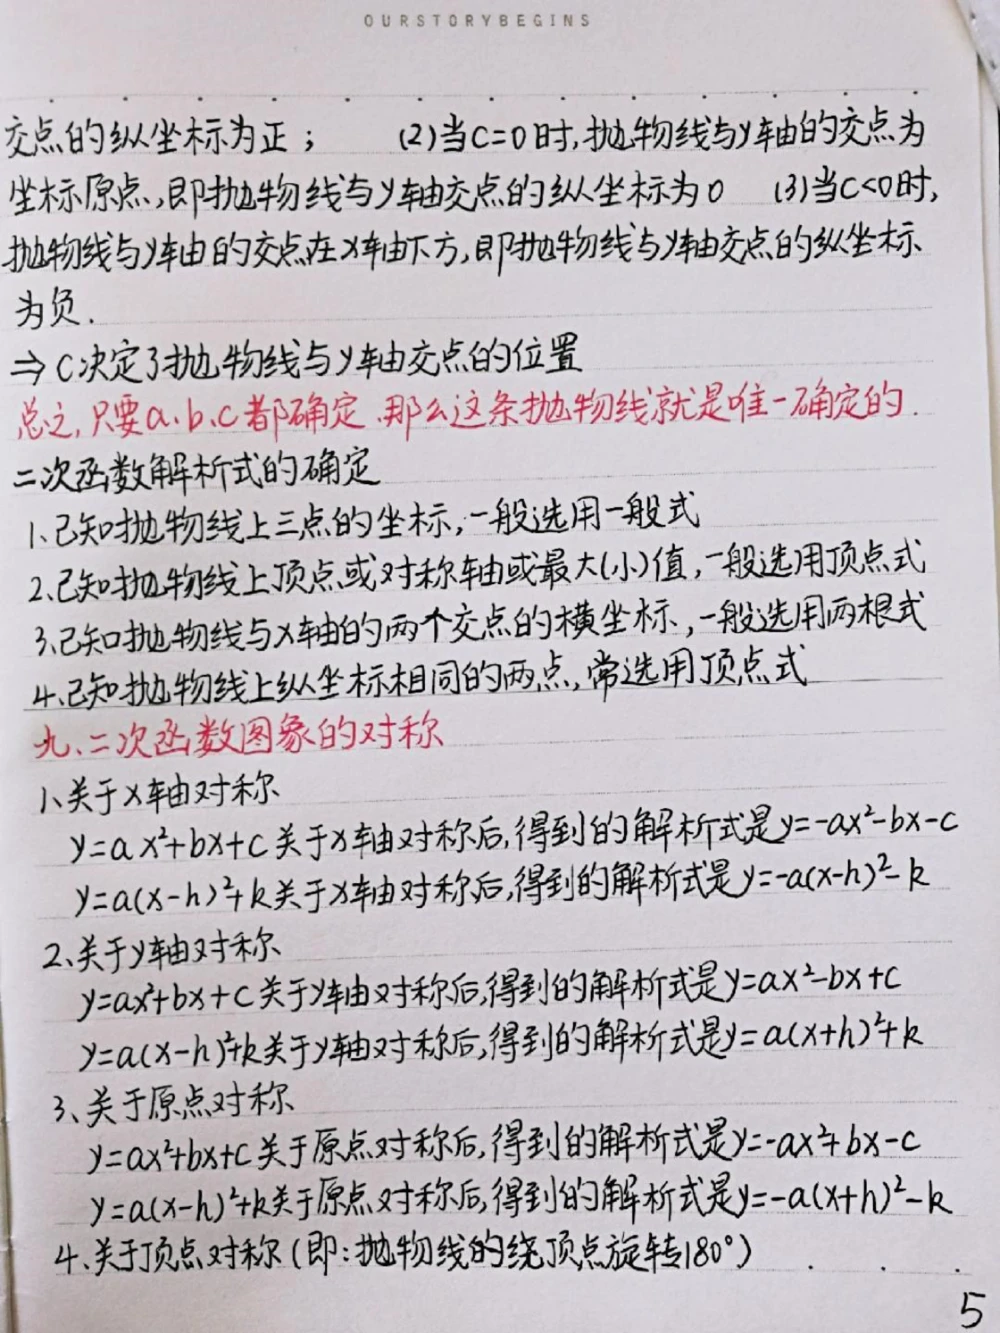 OURSTORYBEGINS
交点的纵坐标为正； (2)当C=0时,抛物线与y轴的交点为
坐标原点,即抛物线与y轴交点的纵坐标为0 (3)当C<0时,
抛物线与y轴的交点在x轴下方,即抛物线与y轴交点的纵坐标
为负.
⇒C决定了抛物线与y轴交点的位置
总之,只要a.b.c都确定,那么这条抛物线就是唯一确定的.
二次函数解析式的确定
1、已知抛物线上三点的坐标,一般选用一般式
2、已知抛物线上顶点或对称轴或最大(小)值,一般选用顶点式
3、已知抛物线与x轴的两个交点的横坐标,一般选用两根式
4、已知抛物线上纵坐标相同的两点,常选用顶点式
九、二次函数图象的对称
1、关于x轴对称
y=ax²+bx+c关于x轴对称后,得到的解析式是y=-ax²-bx-c
y=a(x-h)²+k关于x轴对称后,得到的解析式是y=-a(x-h)²-k
2、关于y轴对称
y=ax²+bx+c关于y轴对称后,得到的解析式是y=ax²-bx+c
y=a(x-h)²+k关于y轴对称后,得到的解析式是y=a(x+h)²+k
3、关于原点对称
y=ax²+bx+c关于原点对称后,得到的解析式是y=-ax²+bx-c
y=a(x-h)²+k关于原点对称后,得到的解析式是y=-a(x+h)²-k
4、关于顶点对称(即:抛物线的绕顶点旋转180°)
5